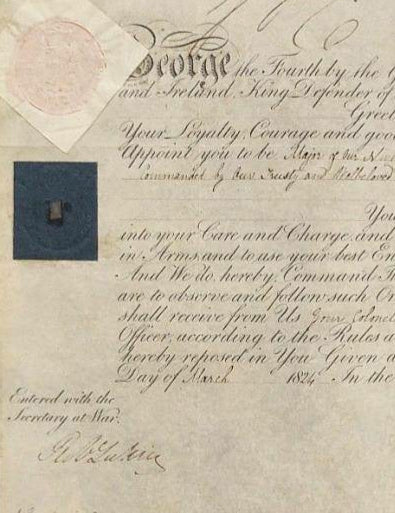 George the Fourth by the G
and Ireland, King Defender of
Greet
Your Loyalty, Courage and goo
Appoint you to be Major of Our Nin
Commanded by Our Trusty and Welbeloved
You
into your Care and Charge, and
in Arms and to use your best En
And We do, hereby, Command Th
are to observe and follow such Or
shall receive from Us your Colonel
Officer, according to the Rules a
hereby reposed in You. Given a
Day of March 1824 In the
Entered with the
Secretary at War.